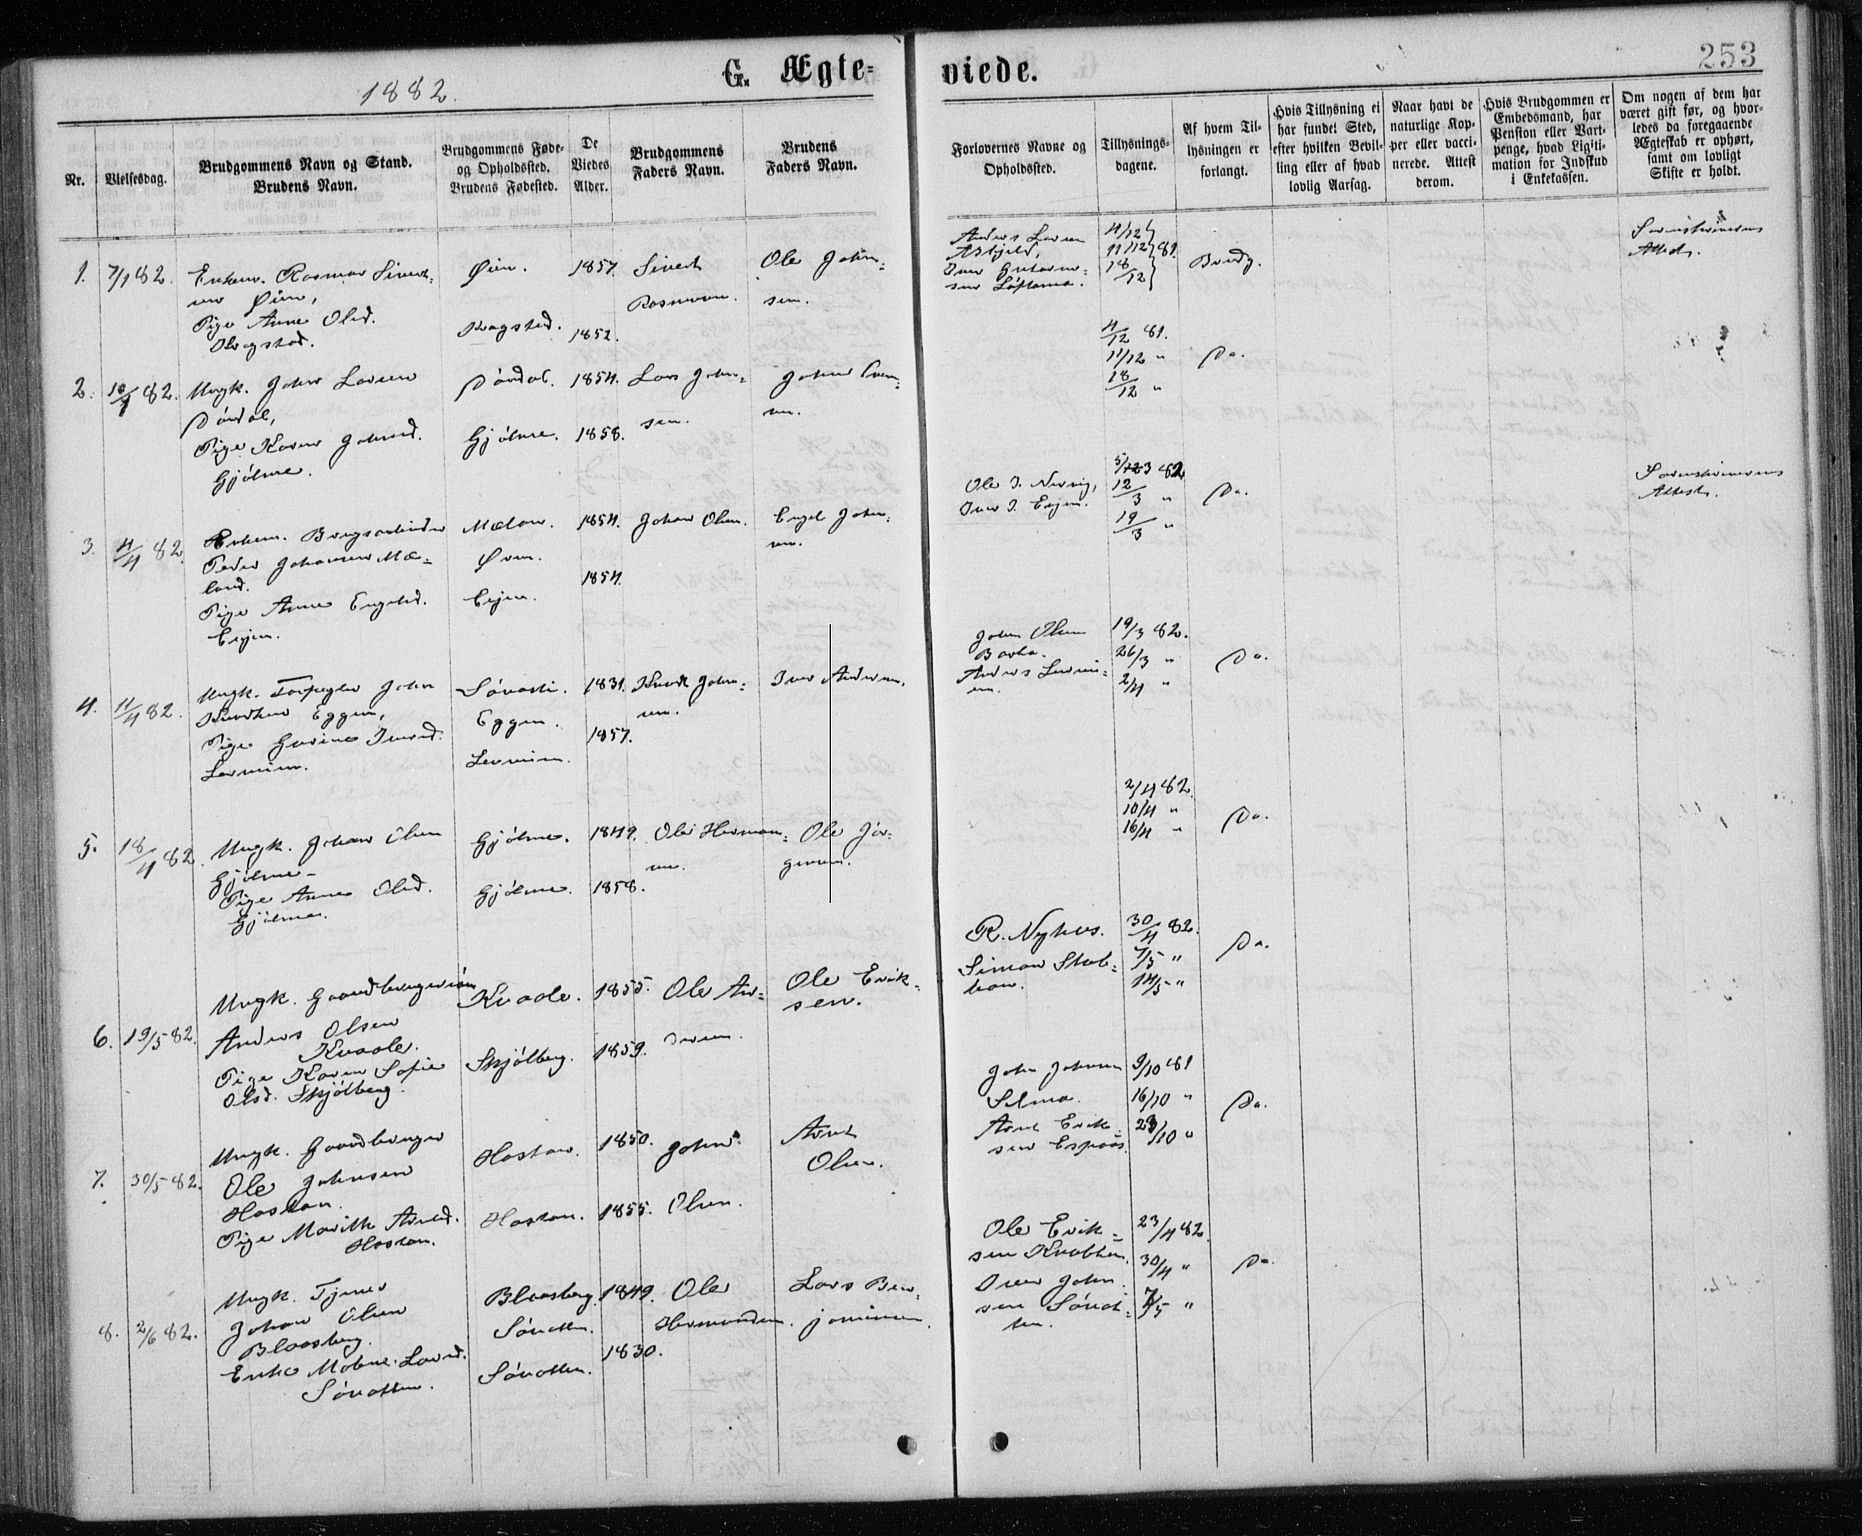 1882.
G. Ægte-
viede.
253
Nr.
Vielsesdag.
Brudgommens Navn og Stand.
Brudens Navn.
Brudgommens Føde-
og Opholdssted.
Brudens Fødested.
De
Viedes
Alder.
Brudgommens
Faders Navn.
Brudens
Faders Navn.
Forlovernes Navne og
Opholdssted.
Tillysnings-
dagene.
Af hvem Til-
lysningen er
forlangt.
Hvis Tillysning ei
har fundet Sted,
efter hvilken Bevil-
ling eller af hvad
lovlig Aarsag.
Naar havt de
naturlige Kop-
per eller vacci-
nerede. Attest
derom.
Hvis Brudgommen er
Embedsmand, har
Pension eller Vart-
penge, hvad Ligiti-
mation for Indskud
i Enkekassen.
Om nogen af dem har
været gift før, og hvor-
ledes da foregaaende
Ægteskab er ophørt,
samt om lovligt
Skifte er holdt.
1. 7/1 82.
Enkem. Rasmus Sivert-
sen Øien,
Pige Anne Olsd.
Øien.
1857.
1852.
Sivert
Rasmussen.
Ole John-
sen.
Anders Larsen
Iver Gustavsen
4/12
11/12 81.
18/12
Brudg.
Sorenskriverens
Attest.
2. 10/1 82.
Ungk. John Larsen
Dørdal,
Pige Karen Johnsd.
Gjølme.
Dørdal.
Gjølme.
1854.
1858.
Lars John-
sen.
John Iver-
sen.
4/12 81.
11/12 "
18/12 "
Do.
3. 4/4 82.
Enkem.
Peder Johansen Mæ-
land.
Pige Anne Engelsd.
Eijen.
Eijen.
1854.
1854.
Johan Olsen.
Engel John-
sen.
Ole J.
Iver J. Eijen.
5/3 82
12/3 "
19/3 "
Do.
Sorenskriverens
Attest.
4. 11/4 82.
Ungk. John
Knudsen Eggen,
Pige Gurine Iversd.
Eggen.
1831.
1857.
Knudt John-
sen.
Iver Andersen.
John Olsen
Anders
19/3 82.
26/3 "
2/4 "
Do.
5. 18/4 82.
Ungk. Johan Olsen
Gjølme-
Pige Anne Olsd.
Gjølme.
Gjølme.
Gjølme.
1849.
1858.
Ole Herman-
sen.
Ole Jør-
gensen.
2/4 82.
10/4 "
16/4 "
Do.
6. 19/5 82.
Ungk. Gaardbrugersøn
Anders Olsen
Kvaale.
Pige Karen Sofie
Olsd. Skjølberg.
Kvaale.
Skjølberg.
1855.
1859.
Ole An-
dersen.
Ole Erik-
sen.
R. Nyhus.
Simon
30/4 82.
7/5 "
14/5 "
Do.
7. 30/5 82.
Ungk. Gaardbruger
Ole Johnsen
Hoston.
Pige Marith Arntsd.
Hoston.
Hoston.
Hoston.
1850.
1855.
John
Olsen.
Arnt
Olsen.
John Johnsen
Arnt Erik-
sen Espaas.
9/10 81
16/10 "
23/10 "
Do.
8. 2/6 82.
Ungk. Tjener
Johan Olsen
Blaasberg.
Enke Malene Larsd.
Blaasberg.
1849.
1830.
Ole
Hermandsen.
Lars Ben-
jaminsen.
Ole Erik-
sen
Iver John-
sen
23/4 82.
30/4 "
7/5 "
Do.